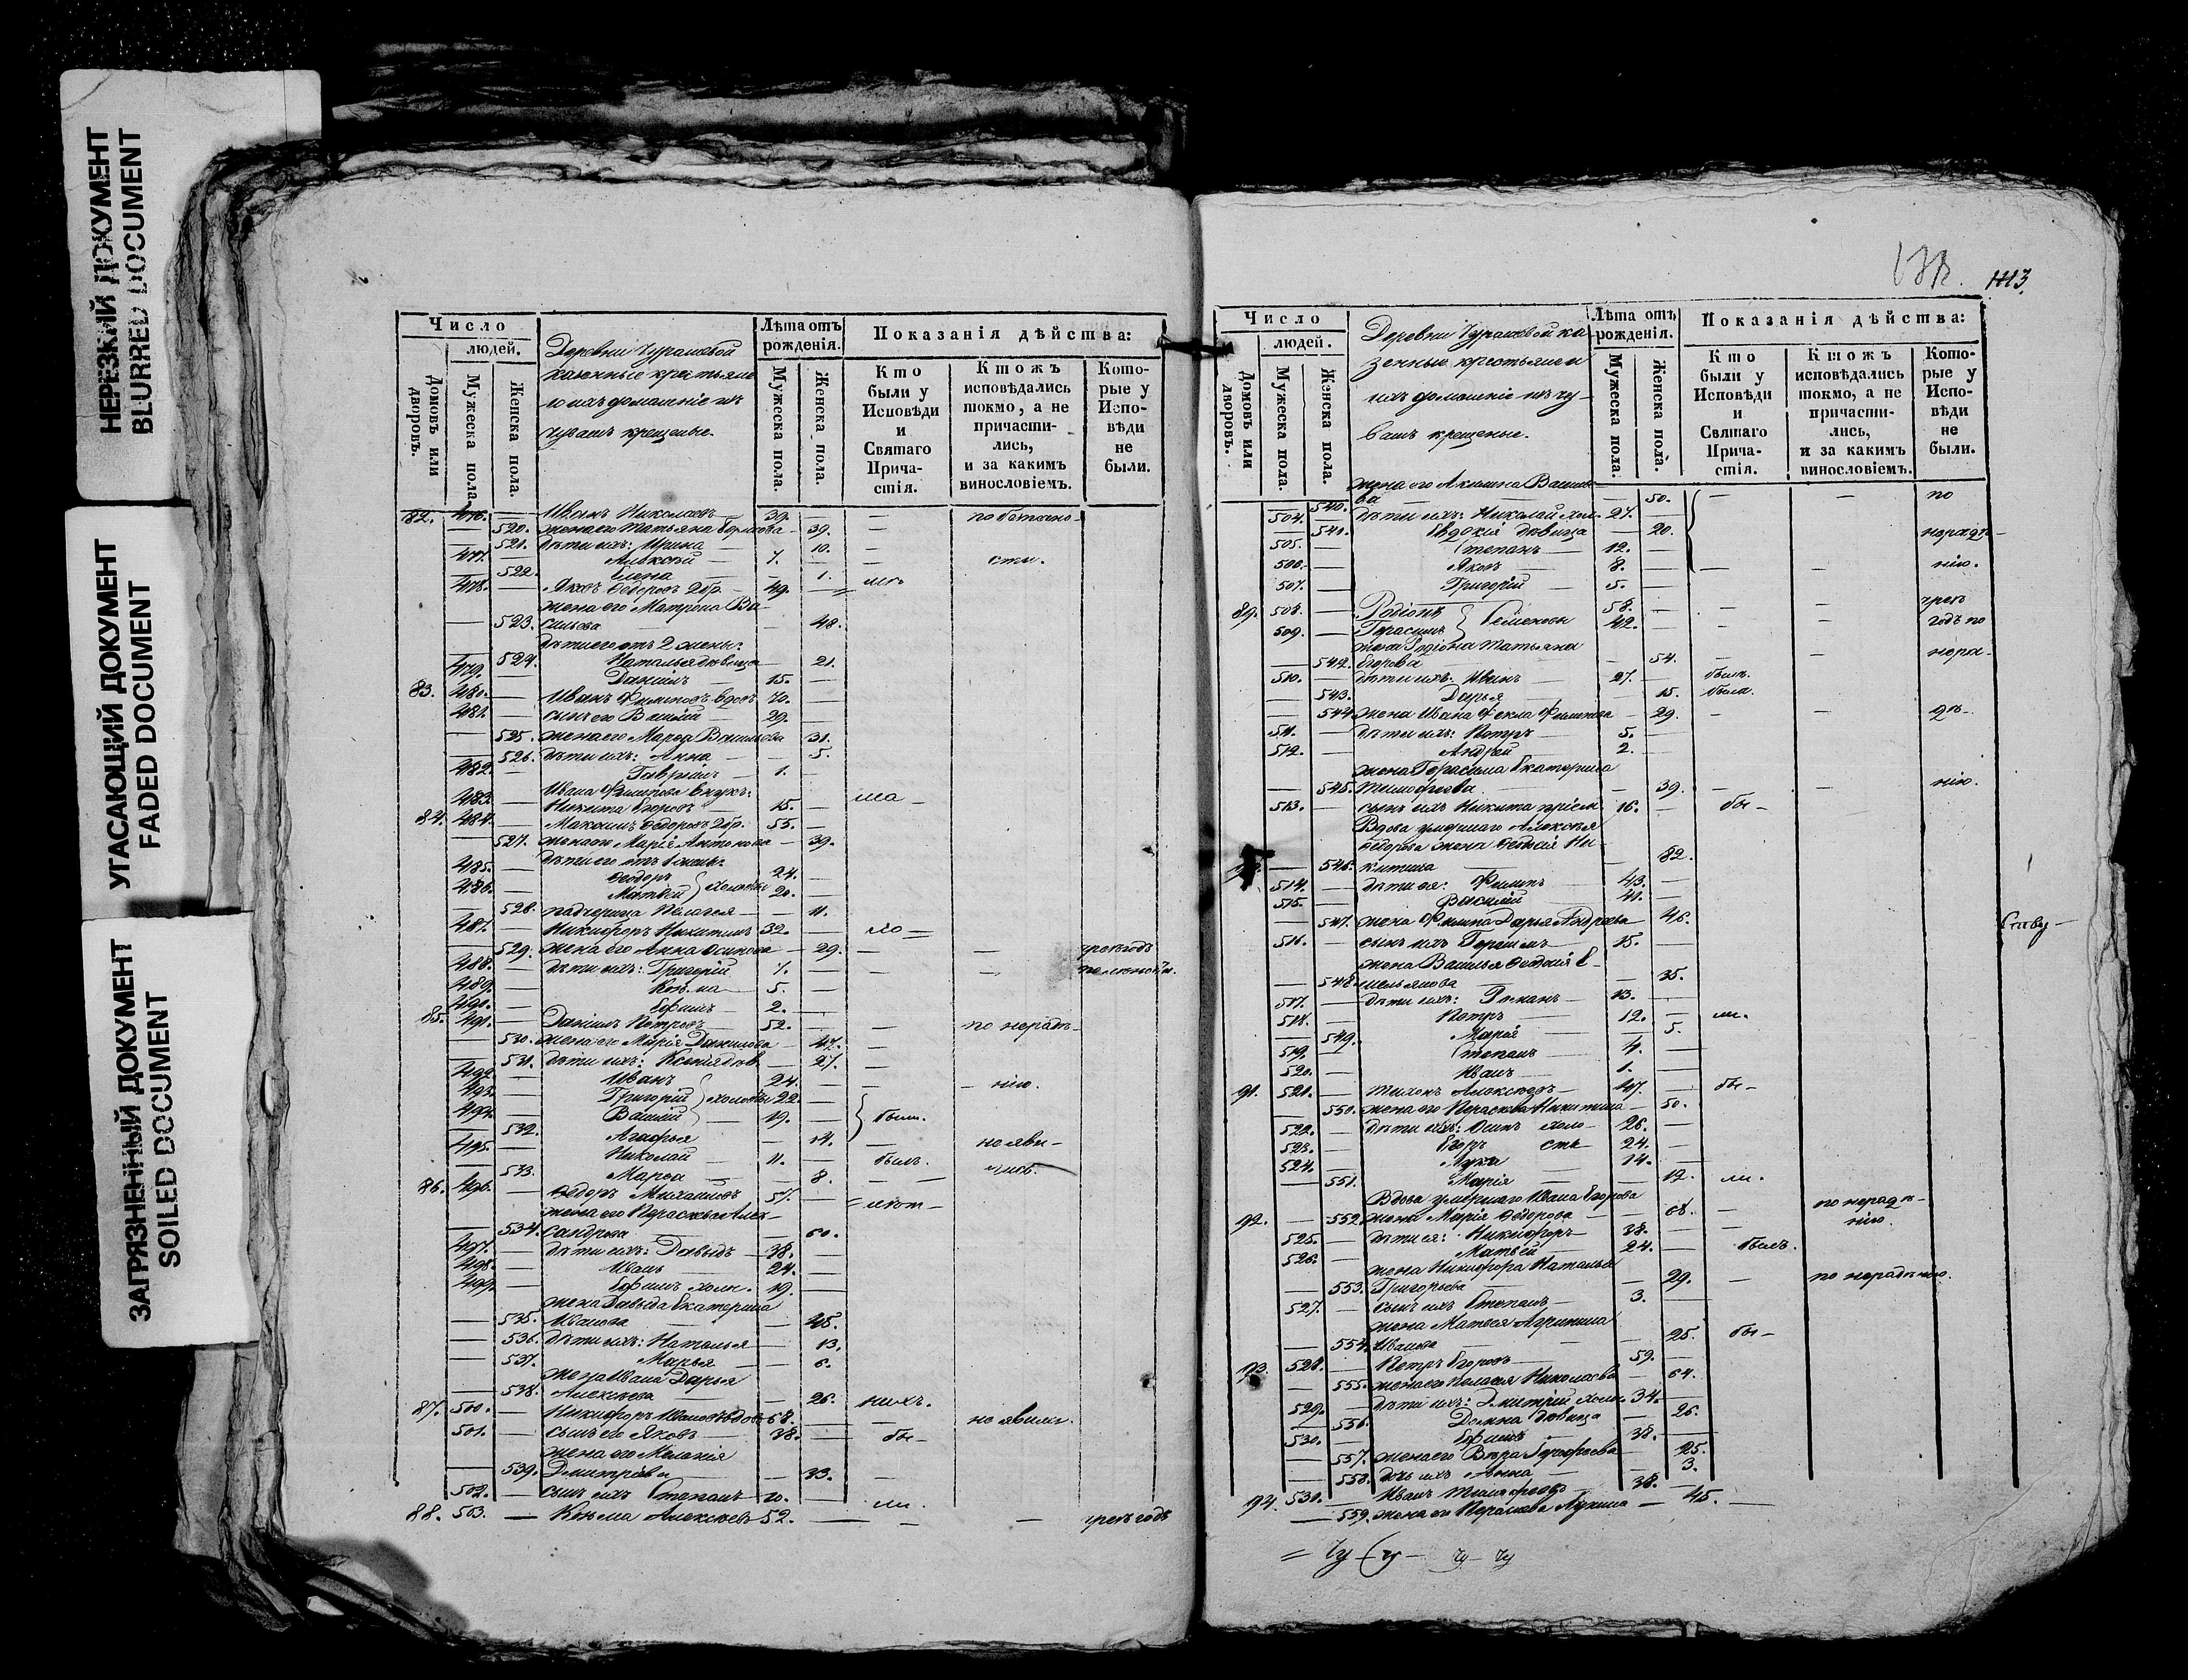 НЕРЕЗКИЙ ДОКУМЕНТ
BLURRED DOCUMENT
УГАСАЮЩИЙ ДОКУМЕНТ
FADED DOCUMENT
ЗАГРЯЗНЕННЫЙ ДОКУМЕНТ
SOILED DOCUMENT
Число
людей.
Домовъ или дворовъ.
Мужеска пола.
Женска пола.
Деревни Чурашевой
казенные крестьяне
домашніе изъ
чувашъ крещеные.
Лѣта отъ рожденія.
Мужеска пола.
Женска пола.
Показанія дѣйства:
Кто были у Исповѣди и Святаго Прича-стія.
Ктожъ исповѣдались токмо, а не причасти-лись, и за какимъ винословіемъ.
Кото-рые у Испо-вѣди не были.
82. 476. — Иванъ Николаевъ — 39. —
— 520. жена его Татьяна — 39.
— 521. дѣти ихъ: Ирина — 10. —
477. — Алексѣй — 7. — — сти.
— 522. Елена — 1.
478. — Яковъ Ѳедоровъ 2бр. — 49. —
жена его Матрона Ва-
— 523. сильева — 48.
дѣти его отъ 2 жены:
— 524. Наталья дѣвица — 21.
479. — Данiилъ — 15. —
83. 480. — Иванъ Филиповъ вдовъ 70. —
481. — сынъ его Василій — 29. —
— 525. жена его Марѳа Васильева 31.
— 526. дѣти ихъ: Анна — 5.
482. — Гавріилъ — 1. —
Ивана Филипова внукъ:
483. — Никита Егоровъ 15. —
84. 484. — Максимъ Ѳедоровъ 2бр. 55. —
— 527. жена его Марія Антонова — 39.
дѣти его отъ 1 жены:
485. — Ѳеодоръ 24. —
486. — Матвей 20. —
— 528. падчерица Пелагея — 11.
487. — Никифоръ Никитинъ 32. —
— 529. жена его Анна Осипова — 29. — —
488. — дѣти ихъ: Григорій 7. —
489. — Козьма — 5. —
490. — Ефимъ — 2. —
85. 491. — Даніилъ Петровъ — 52. — — по нерадѣ-
— 530. жена его Марія Данилова — 47. —
— 531. дѣти ихъ: Ксенія дѣв. — 27. —
492. — Иванъ 24. — — нію.
493. — Григорій 22. —
494. — Василій — 19. — были.
— 532. Агафья — 14. — не яви-
495. — Николай — 11. — былъ.
— 533. Марѳа — 8. —
86. 496. — Ѳедоръ Михайловъ 57. —
жена его Параскева Алек-
— 534. сандрова — 60.
497. — дѣти ихъ: Давыдъ — 38. —
498. — Иванъ — 24. —
499. — Ефимъ холн. 19. —
жена Давыда Екатерина
— 535. Иванова — 45.
— 536. дѣти ихъ: Наталья — 13.
— 537. Марья — 6.
жена Ивана Дарья
— 538. Алексѣева — 26.
87. 500. — Никифоръ Ивановъ вдовъ 68. —
501. — сынъ его Яковъ — 38. — бы-
жена его Меланія
— 539. Дмитріева — 33. —
502. — сынъ ихъ Степанъ 10. — ли.
88. 503. — Козьма Алексѣевъ 52. — — — чрезъ годъ
113.
Число
людей.
Домовъ или дворовъ.
Мужеска пола.
Женска пола.
Деревни Чурашевой ка-
зенные крестьяне и
ихъ домашніе изъ чу-
вашъ крещеные.
Лѣта отъ рожденія.
Мужеска пола.
Женска пола.
Показанія дѣйства:
Кто были у Исповѣди и Святаго Прича-стія.
Ктожъ исповѣдались токмо, а не причасти-лись, и за какимъ винословіемъ.
Кото-рые у Испо-вѣди не были.
жена его Акилина Василье-
— 540. ва — 50. — — по
504. — дѣти ихъ: Николай хол. 27. —
— 541. Евдокія дѣвица — 20. нерадѣ-
505. — Степанъ — 12. —
506. — Яковъ — 8. — — — нію.
507. — Григорій — 5. —
89. 508. — Родіонъ 58. — — — чрезъ
509. — Герасимъ } Семеновы 42. — — — годъ по
жена Родіона Татьяна
— 542. Егорова — 54. — — нера-
510. — дѣти ихъ: Иванъ — 27. — былъ.
— 543. Дарья — 15. была.
— 544. жена Ивана Ѳекла Филипова — 29. — — дѣ-
511. — дѣти ихъ: Петръ — 5. —
512. — Андрей 2. —
жена Герасима Екатерина
— 545. Тимоѳеева — 39. — — нію.
513. — сынъ ихъ Никита пріем. 16. — бы-
Вдова умершаго Алексѣя
Ѳедорова жена Ѳедосія Ни-
— 546. китина 82.
514. — дѣти ея: Филипъ — 43. —
515. — Василій 41. —
— 547. жена Филипа Дарья Андреева — 46.
516. — сынъ ихъ Герасимъ — 15. —
жена Василья Ѳедосія Е-
— 548. мельянова — 35.
517. — дѣти ихъ: Романъ — 13. —
518. — Петръ — 12. — ли.
— 549. Марія — 5.
519. — Степанъ 4. —
520. — Иванъ 1. —
91. 521. — Тихонъ Алексѣевъ — 47. — бы-
— 550. жена его Параскева Никитина — 50.
522. — дѣти ихъ: Осипъ холо- 26. —
523. — Егоръ сты 24. —
524. — Лука — 14. —
— 551. Марія — 12. ли.
Вдова умершаго Ивана Егорова
92. — 552. жена Марія Ѳедорова — 68. — по нерадѣ-
525. — дѣти ея: Никифоръ — 38. — — нію.
526. — Матвей — 24. — былъ.
жена Никифора Наталья
— 553. Григорьева — 29. — по нерадѣнію.
527. — сынъ ихъ Степанъ — 3. —
жена Матвея Агрипина
— 554. Иванова — 25. бы-
93. 528. — Петръ Егоровъ — 59. —
— 555. жена его Пелагея Николаева — 64.
529. — дѣти ихъ: Дмитрій холн. 34. —
— 556. Домна дѣвица — 26.
530. — Ефимъ — 38. —
— 557. жена его Вѣра — 25.
— 558. дочь ихъ Анна — 3.
94. 531. — Иванъ Тимоѳеевъ — 38. —
— 559. жена его Параскева Лукина — 45. —